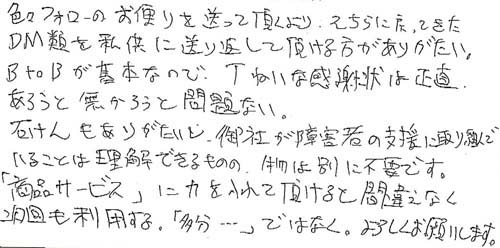 色々フォローのお便りを送って頂くより、そちらに戻ってきた
DM類を私供に送り返して頂ける方がありがたい。
BtoBが基本なので、Tねいな感謝状は正直
あろうと無かろうと問題ない。
石けんもありがたいし、御社が障害者の支援に取り組んで
いることは理解できるものの、物は別に不要です。
「商品サービス」に力を入れて頂けると間違えなく
次回も利用する。「多分…」ではなく。よろしくお願いします。